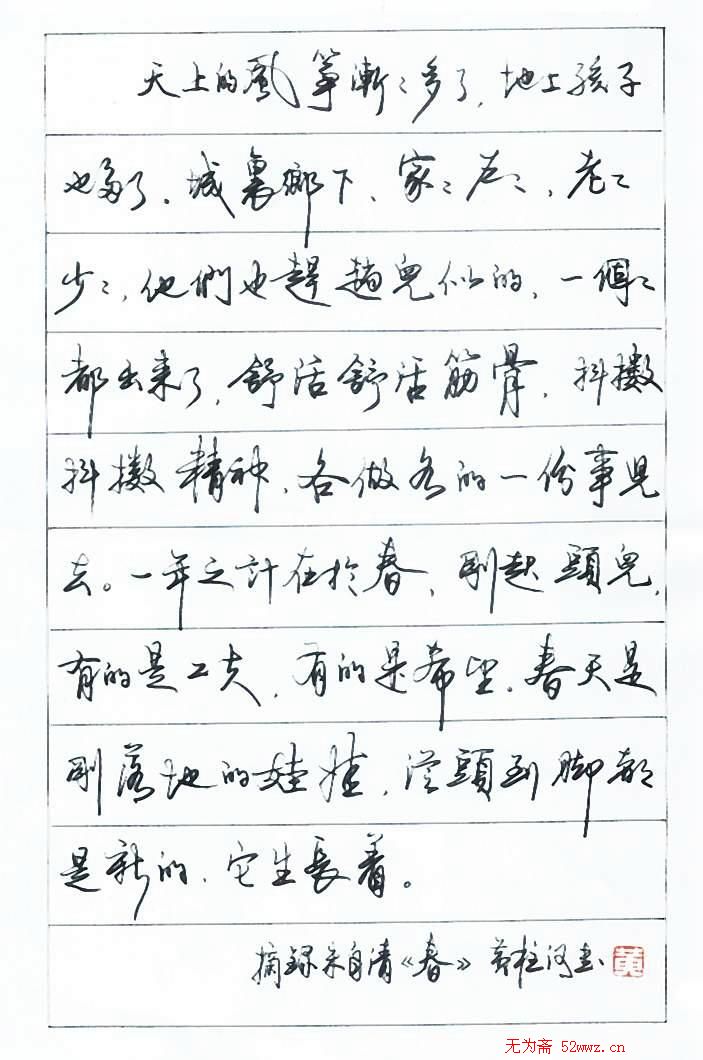 天上的風筝漸〻多了，地上孩子
也多了。城裏鄉下、家〻户〻，老〻
少〻，他們也趕趟兒似的，一個〻
都出来了，舒活舒活筋骨，抖擻
抖擻精神，各做各的一份事兒
去。一年之計在於春，剛起頭兒，
有的是工夫，有的是希望。春天是
剛落地的娃娃，從頭到脚都
是新的，它生長着。
摘録朱自清《春》 黄柱河書 黄
无为斋 52wwz.cn